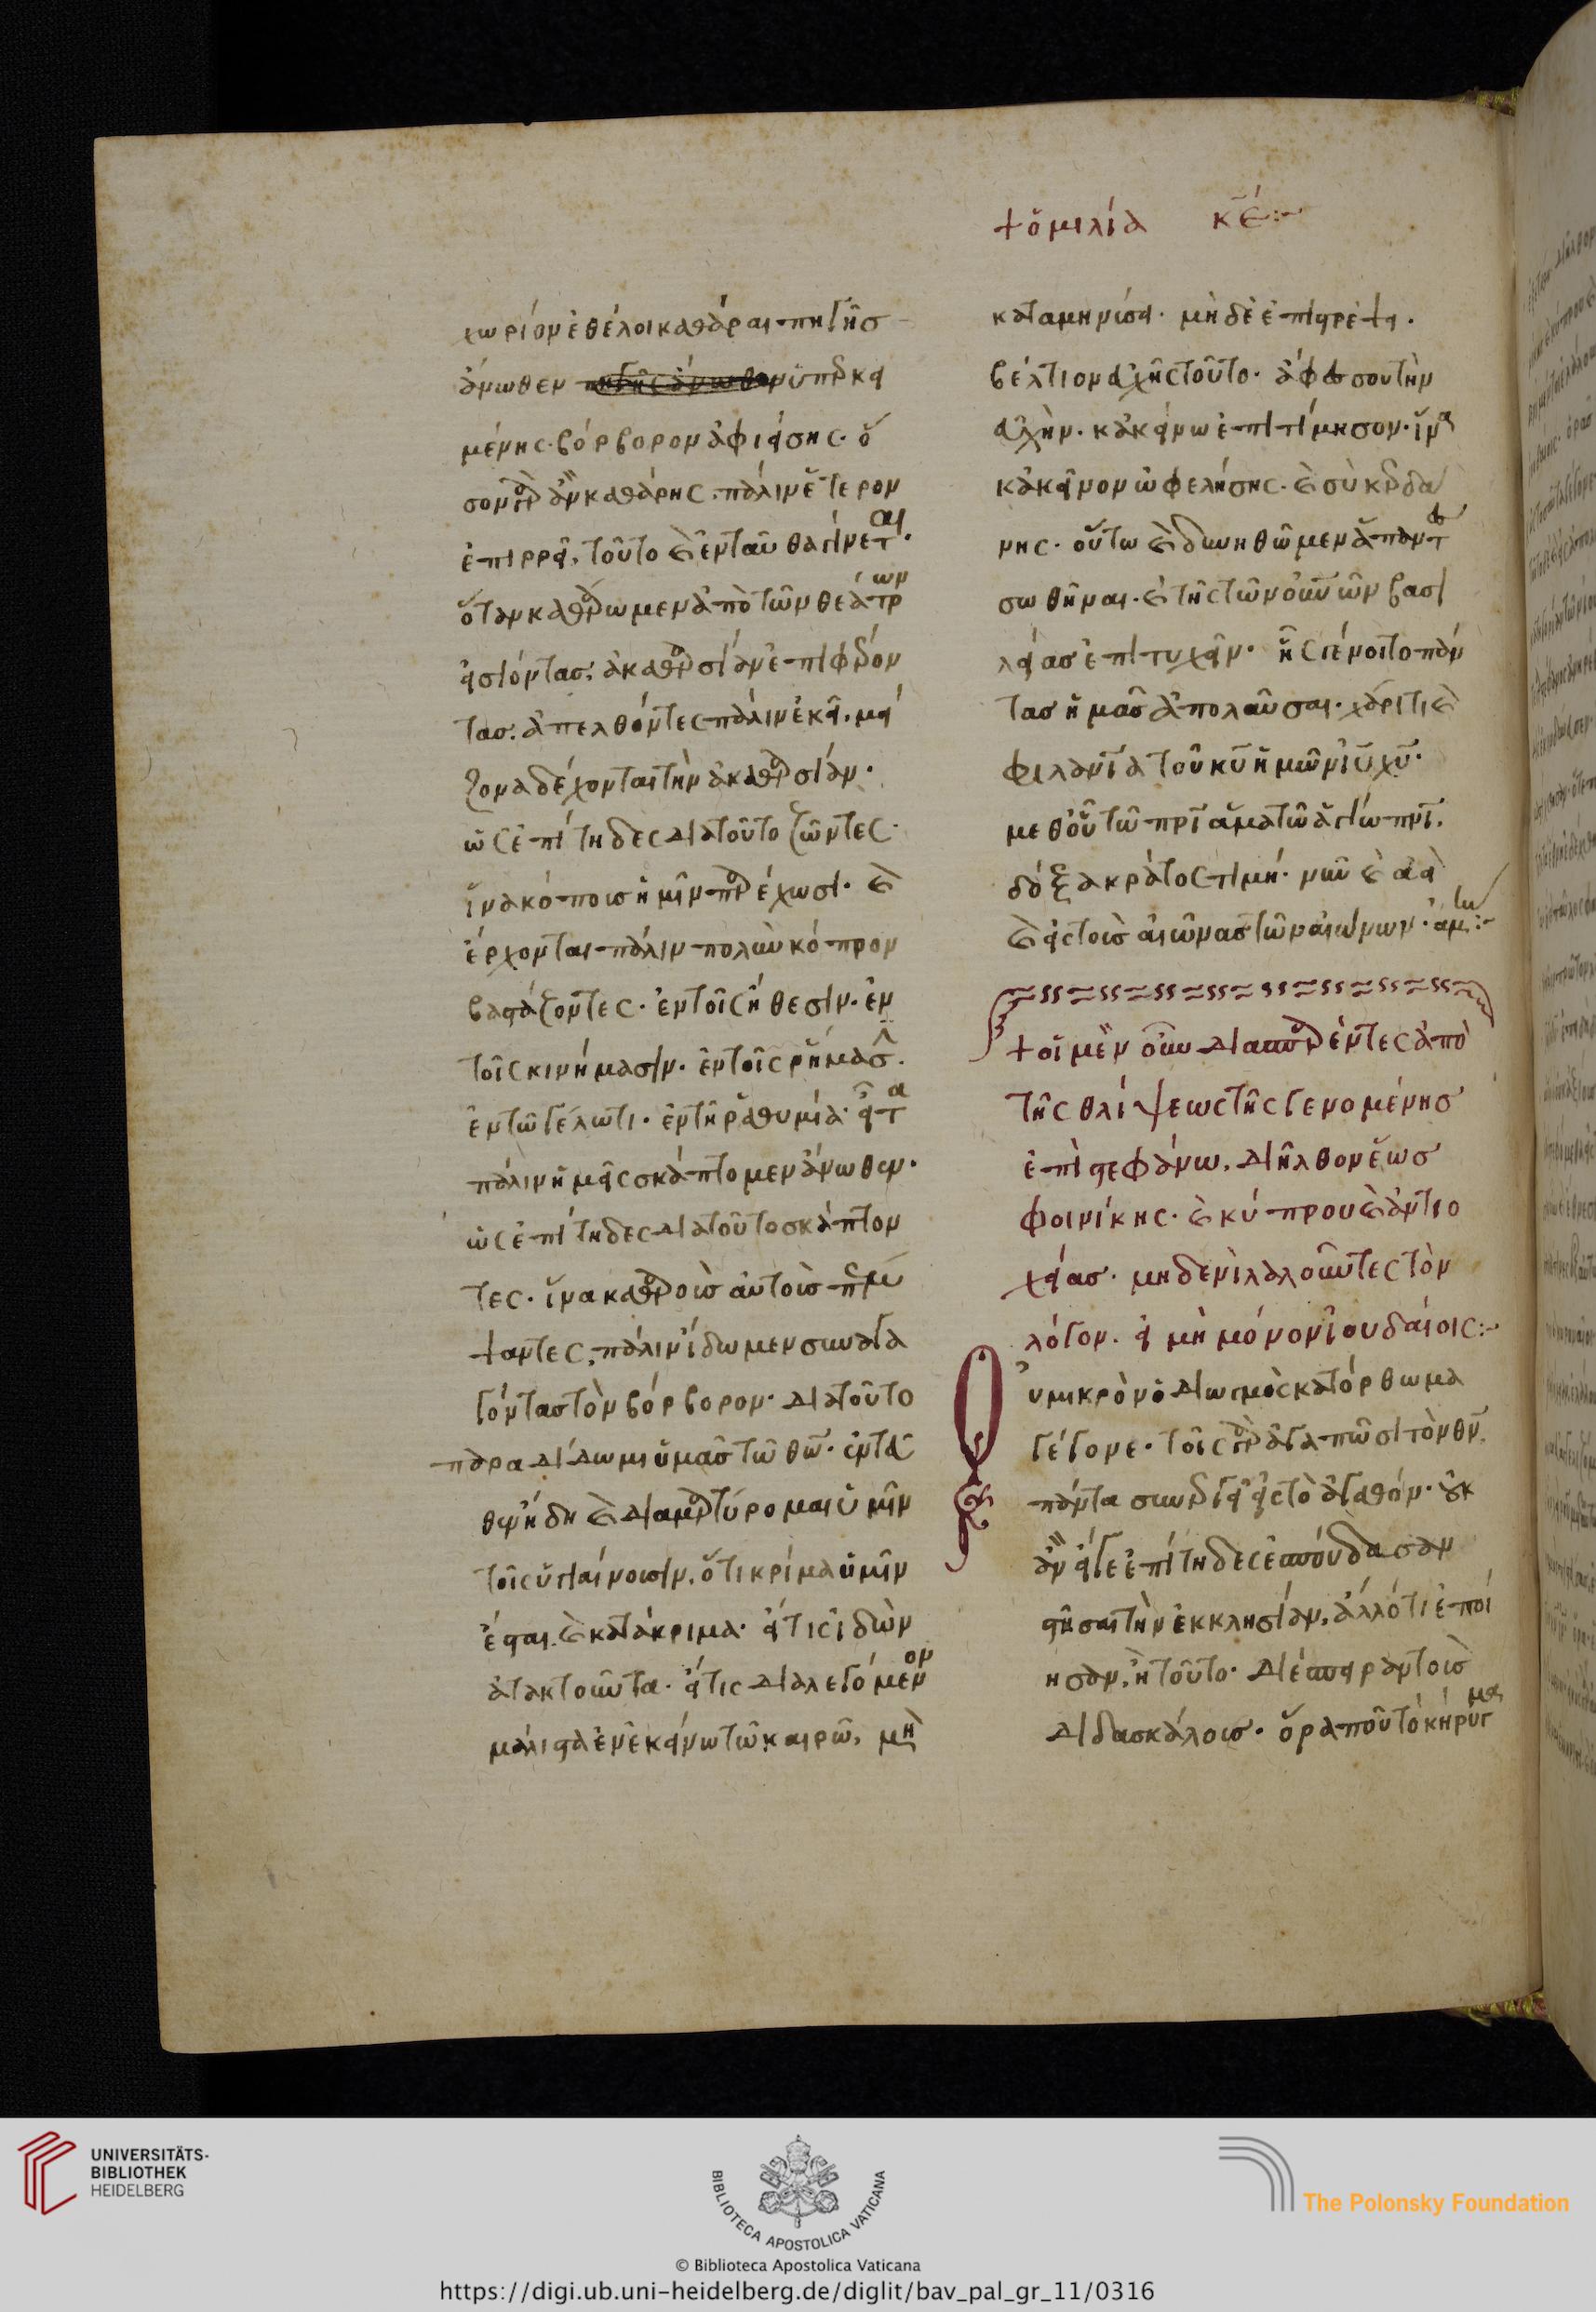 + ὁμιλία κε´:~
χωρίον ἐθέλοι καθάραι πηγῆσ
ἄνωθεν ὑπερκει
μένης βόρβορον ἀφιείσης· ὅ
σον γὰρ ἂν καθάρης, πάλιν ἕτερον
ἐπιρρεῖ, τοῦτο καὶ ἐνταῦθα γίνεται·
ὅταν καθάρωμεν ἀπὸ τῶν θεάτρων
εἰσιόντασ, ἀκαθαρσίαν ἐπιφέρον
τασ, ἀπελθόντες πάλιν ἐκεῖ, μεί
ζονα δέχονται τὴν ἀκαθαρσίαν·
ὡς ἐπίτηδες διατοῦτο ζῶντες·
ἵνα κόποισ ἡμῖν παρέχωσι· καὶ
ἔρχονται πάλιν πολὺν κόπρον
βαστάζοντες· ἐν τοῖς ἤθεσιν· ἐν
τοῖς κινήμασιν· ἐν τοῖς ῥήμασιν·
ἐν τῶ γέλωτι· ἐν τῆ ῥαθυμία· εἶτα
πάλιν ἡμεῖς σκάπτομεν ἄνωθεν·
ὡς ἐπίτηδες διατοῦτο σκάπτον
τες· ἵνα καθαροὺσ αὐτοὺσ προπέμ
ψαντες, πάλιν ἴδωμεν συναγα
γόντας τὸν βόρβορον· διατοῦτο
παραδίδωμι ὑμᾶσ τῶ θῶ· ἐνταῦ
θεν ἤδη καὶ διαμαρτύρομαι ὑμῖν
τοῖς ὑγιαίνουσιν, ὅτι κρίμα ὑμῖν
ἔσται, καὶ κατάκριμα· εἴ τις ἰδὼν
ἀτακτοῦντα· εἴ τις διαλεγόμενον
μάλιστα ἐν ἐκείνω τῶ καιρῶ, μὴ
καταμηνύσει· μηδὲ ἐπιστρέψει·
βέλτιον εὐχῆς τοῦτο· ἄφες σου τὴν
εὐχὴν· κἀκείνω ἐπιτίμησον· ἵνα
κἀκεῖνον ὠφελήσης· καὶ σὺ κερδά
νης· οὕτω καὶ δυνηθῶμεν ἅπαντες
σωθῆναι· καὶ τῆς τῶν οὐνῶν βασι
λείασ ἐπιτυχεῖν· ἧς γένοιτο πάν
τασ ἡμᾶσ ἀπολαῦσαι· χάριτι καὶ
φιλανία τοῦ κυ ἡμῶν ιυ χυ·
μεθ οὗ τῶ πρι ἅμα τῶ ἁγίω πνι,
δόξα κράτος τιμή· νῦν καὶ ἀεὶ
καὶ εἰς τοὺσ αἰῶνασ τῶν αἰώνων· ἀμήν:~
+ οἱ μὲν οὖν διασπαρέντες ἀπὸ
τῆς θλίψεως τῆς γενομένησ
ἐπὶ στεφάνω, διῆλθον ἕωσ
φοινίκης· καὶ κύπρου καὶ ἀντιο
χείασ· μηδενὶ λαλοῦντες τὸν
λόγον· εἰ μὴ μόνον ἰουδαίοις:~
Οὐ μικρὸν ὁ διωγμὸς κατόρθωμα
γέγονε· τοῖς γὰρ ἀγαπῶσι τὸν θν,
πάντα συνεργεῖ εἰς τὸ ἀγαθόν· οὐκ
ἂν εἴγε ἐπίτηδες ἐσπούδασαν
στῆσαι τὴν ἐκκλησίαν, ἄλλό τι ἐποί
ησαν, ἢ τοῦτο· διέσπειραν τοὺσ
διδασκάλουσ· ὅρα ποῦ τὸ κήρυγμα
UNIVERSITÄTS-
BIBLIOTHEK
HEIDELBERG
BIBLIOTECA APOSTOLICA VATICANA
© Biblioteca Apostolica Vaticana
The Polonsky Foundation
https://digi.ub.uni-heidelberg.de/diglit/bav_pal_gr_11/0316